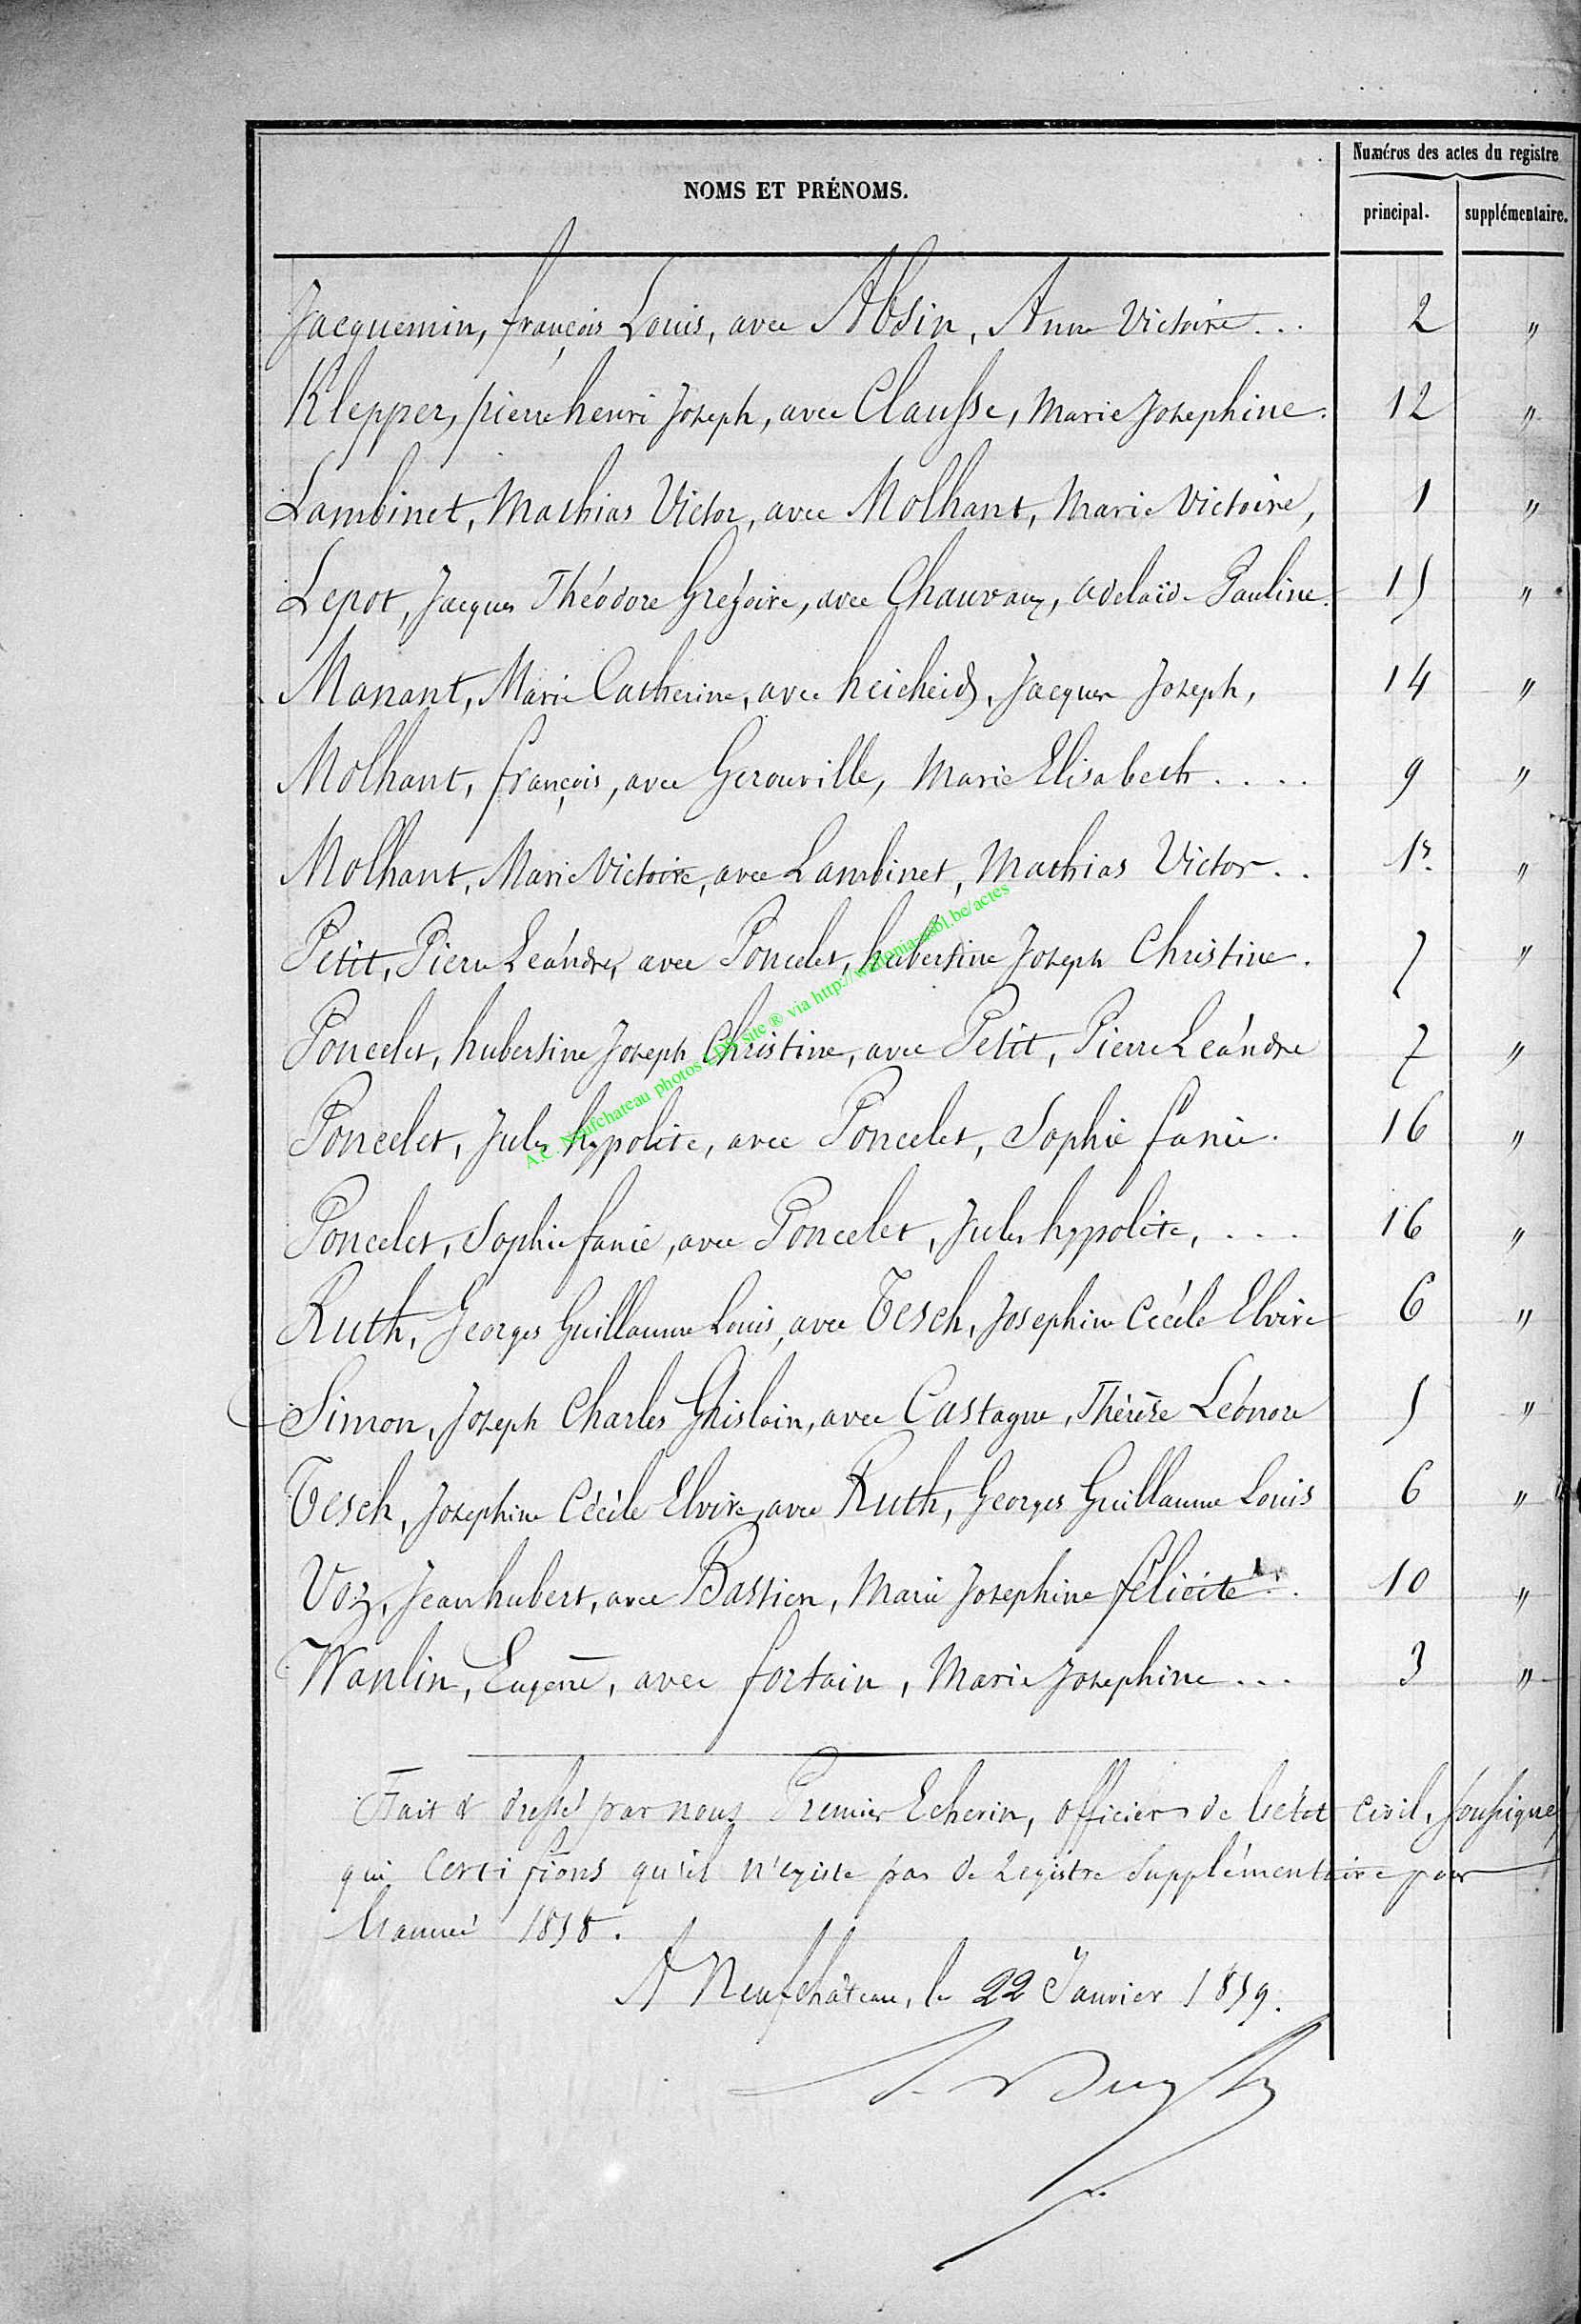 Numéros des actes du registre
NOMS ET PRÉNOMS.
principal. supplémentaire.
Jacquemin, françois Louis, avec Absin, Anne Victoire... 2 "
Klepper, pierre henri Joseph, avec Clausse, Marie Josephine. 12 "
Lambinet, Mathias Victor, avec Molhant, Marie Victoire, 1 "
Lepot, Jacques Théodore Grégoire, avec Chauvaux, adelaïde Pauline. 15 "
Manant, Marie Catherine, avec heicheid, Jacques Joseph, 14 "
Molhant, françois, avec Gerouville, Marie Elisabeth.... 9 "
Molhant, Marie Victoire, avec Lambinet, Mathias Victor.. 1r. "
Petit, Pierre Léandre, avec Poncelet, hubertine Joseph Christine. 7 "
Poncelet, hubertine Joseph Christine, avec Petit, Pierre Léandre 7 "
Poncelet, Jules hypolite, avec Poncelet, Sophie fanie. 16 "
Poncelet, Sophie fanie, avec Poncelet, Jules hypolite, .... 16 "
Ruth, Georges Guillaume Louis, avec Tesch, Josephine Cécile Elvire 6 "
Simon, Joseph Charles Ghislain, avec Castagne, Thérèse Léonore 5 "
Tesch, Josephine Cécile Elvire, avec Ruth, Georges Guillaume Louis 6 "
Voz, Jean hubert, avec Bastien, Marie Josephine félicité.. 10 "
Wanlin, Eugene, avec fortain, Marie Josephine... 3 "
Fait & dressé par nous Premier Echevin, officier de l'état civil, soussigné
qui certifions qu'il n'existe pas de Registre Supplémentaire pour
l'année 1858.
A Neufchâteau, le 22 Janvier 1859.
A.C. Neufchateau photos LDS site ® via http://wallonia-asbl.be/actes